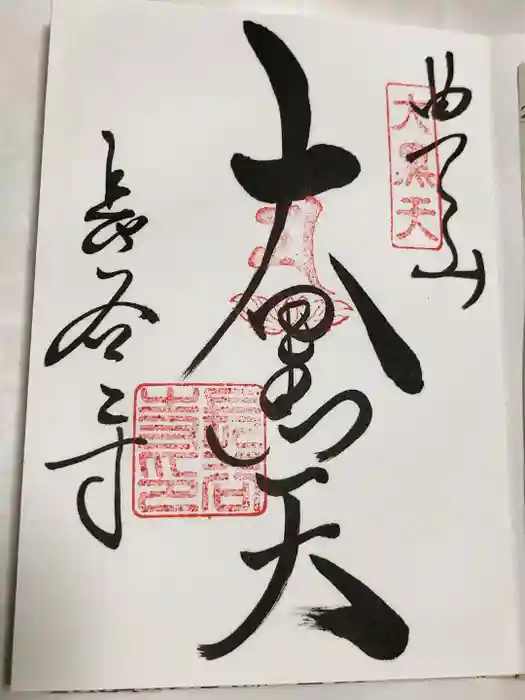 豊山
大黒天
大黒天
長谷寺